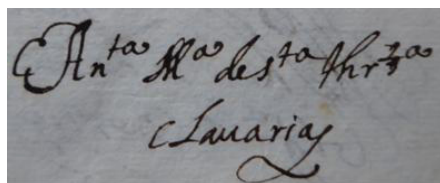 Anta Ma de sta Thrza
Clauarias